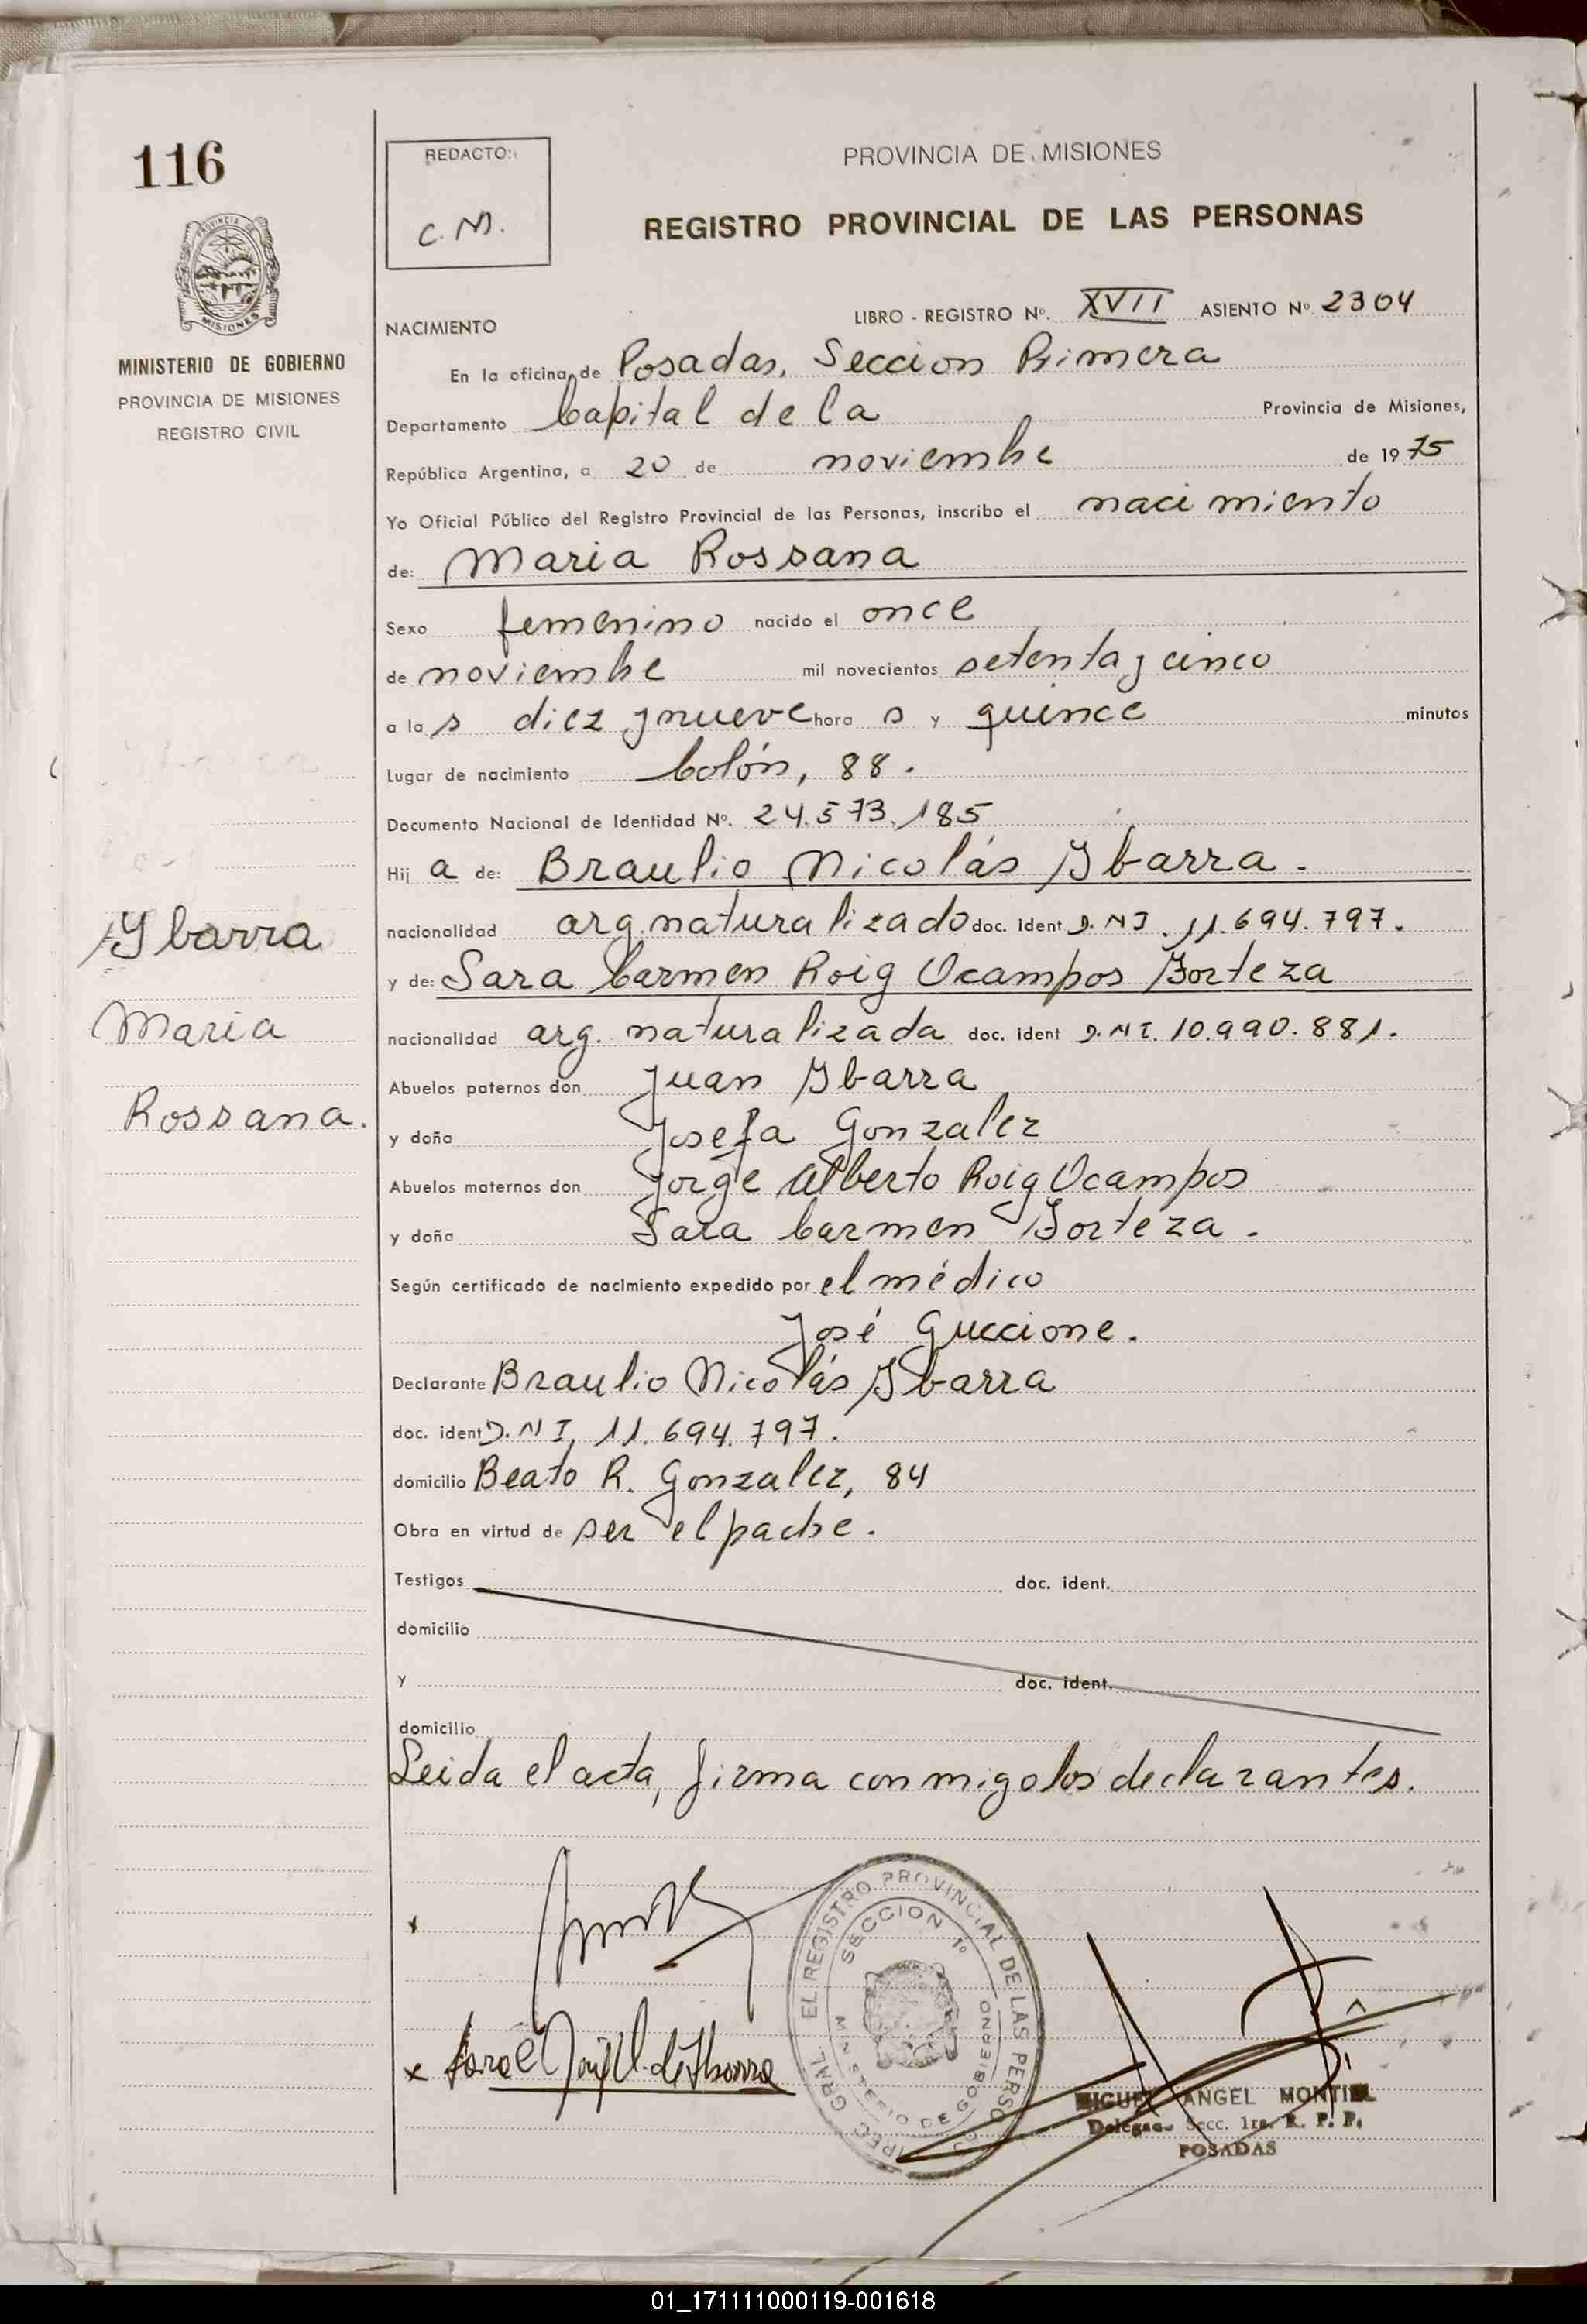 116
REDACTO:
C. M.
PROVINCIA DE MISIONES
REGISTRO PROVINCIAL DE LAS PERSONAS
MISIONES
MINISTERIO DE GOBIERNO
PROVINCIA DE MISIONES
REGISTRO CIVIL
NACIMIENTO
LIBRO - REGISTRO Nº. XVII ASIENTO Nº 2304
En la oficina de Posadas, Seccion Primera
Departamento Capital de la Provincia de Misiones,
República Argentina, a 20 de noviembre de 1975
Yo Oficial Público del Registro Provincial de las Personas, inscribo el nacimiento
de: Maria Rossana
Sexo femenino nacido el once
de noviembre mil novecientos setenta y cinco
a las diez y nueve horas y quince minutos
Lugar de nacimiento Colón, 88.
Documento Nacional de Identidad Nº. 24.573.185
Hija de: Braulio Nicolás Ybarra.
nacionalidad arg. naturalizado doc. ident D.N.I. 11.694.797.
y de: Sara Carmen Roig Ocampos Yorteza
nacionalidad arg. naturalizada doc. ident D.N.I. 10.990.881.
Abuelos paternos don Juan Ybarra
y doña Josefa Gonzalez
Abuelos maternos don Jorge Alberto Roig Ocampos
y doña Sara Carmen Yorteza.
Según certificado de nacimiento expedido por el médico
José Guccione.
Declarante Braulio Nicolás Ybarra
doc. ident D.N.I. 11.694.797.
domicilio Beato R. Gonzalez, 84
Obra en virtud de ser el padre.
Testigos doc. ident.
domicilio
y doc. ident.
domicilio
Leida el acta, firma conmigo los declarantes.
Ybarra
Maria
Rossana.
EL REGISTRO PROVINCIAL DE LAS PERSO
SECCION 1º
MINISTERIO DE GOBIERNO
MIGUEL ANGEL MONTIEL
Delegado Secc. 1ra. R. P. P.
POSADAS
01_171111000119-001618